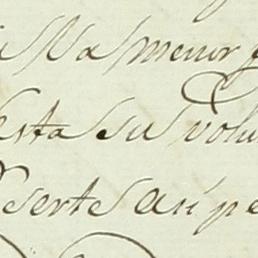 la menor
esta su volu
serte asi pe